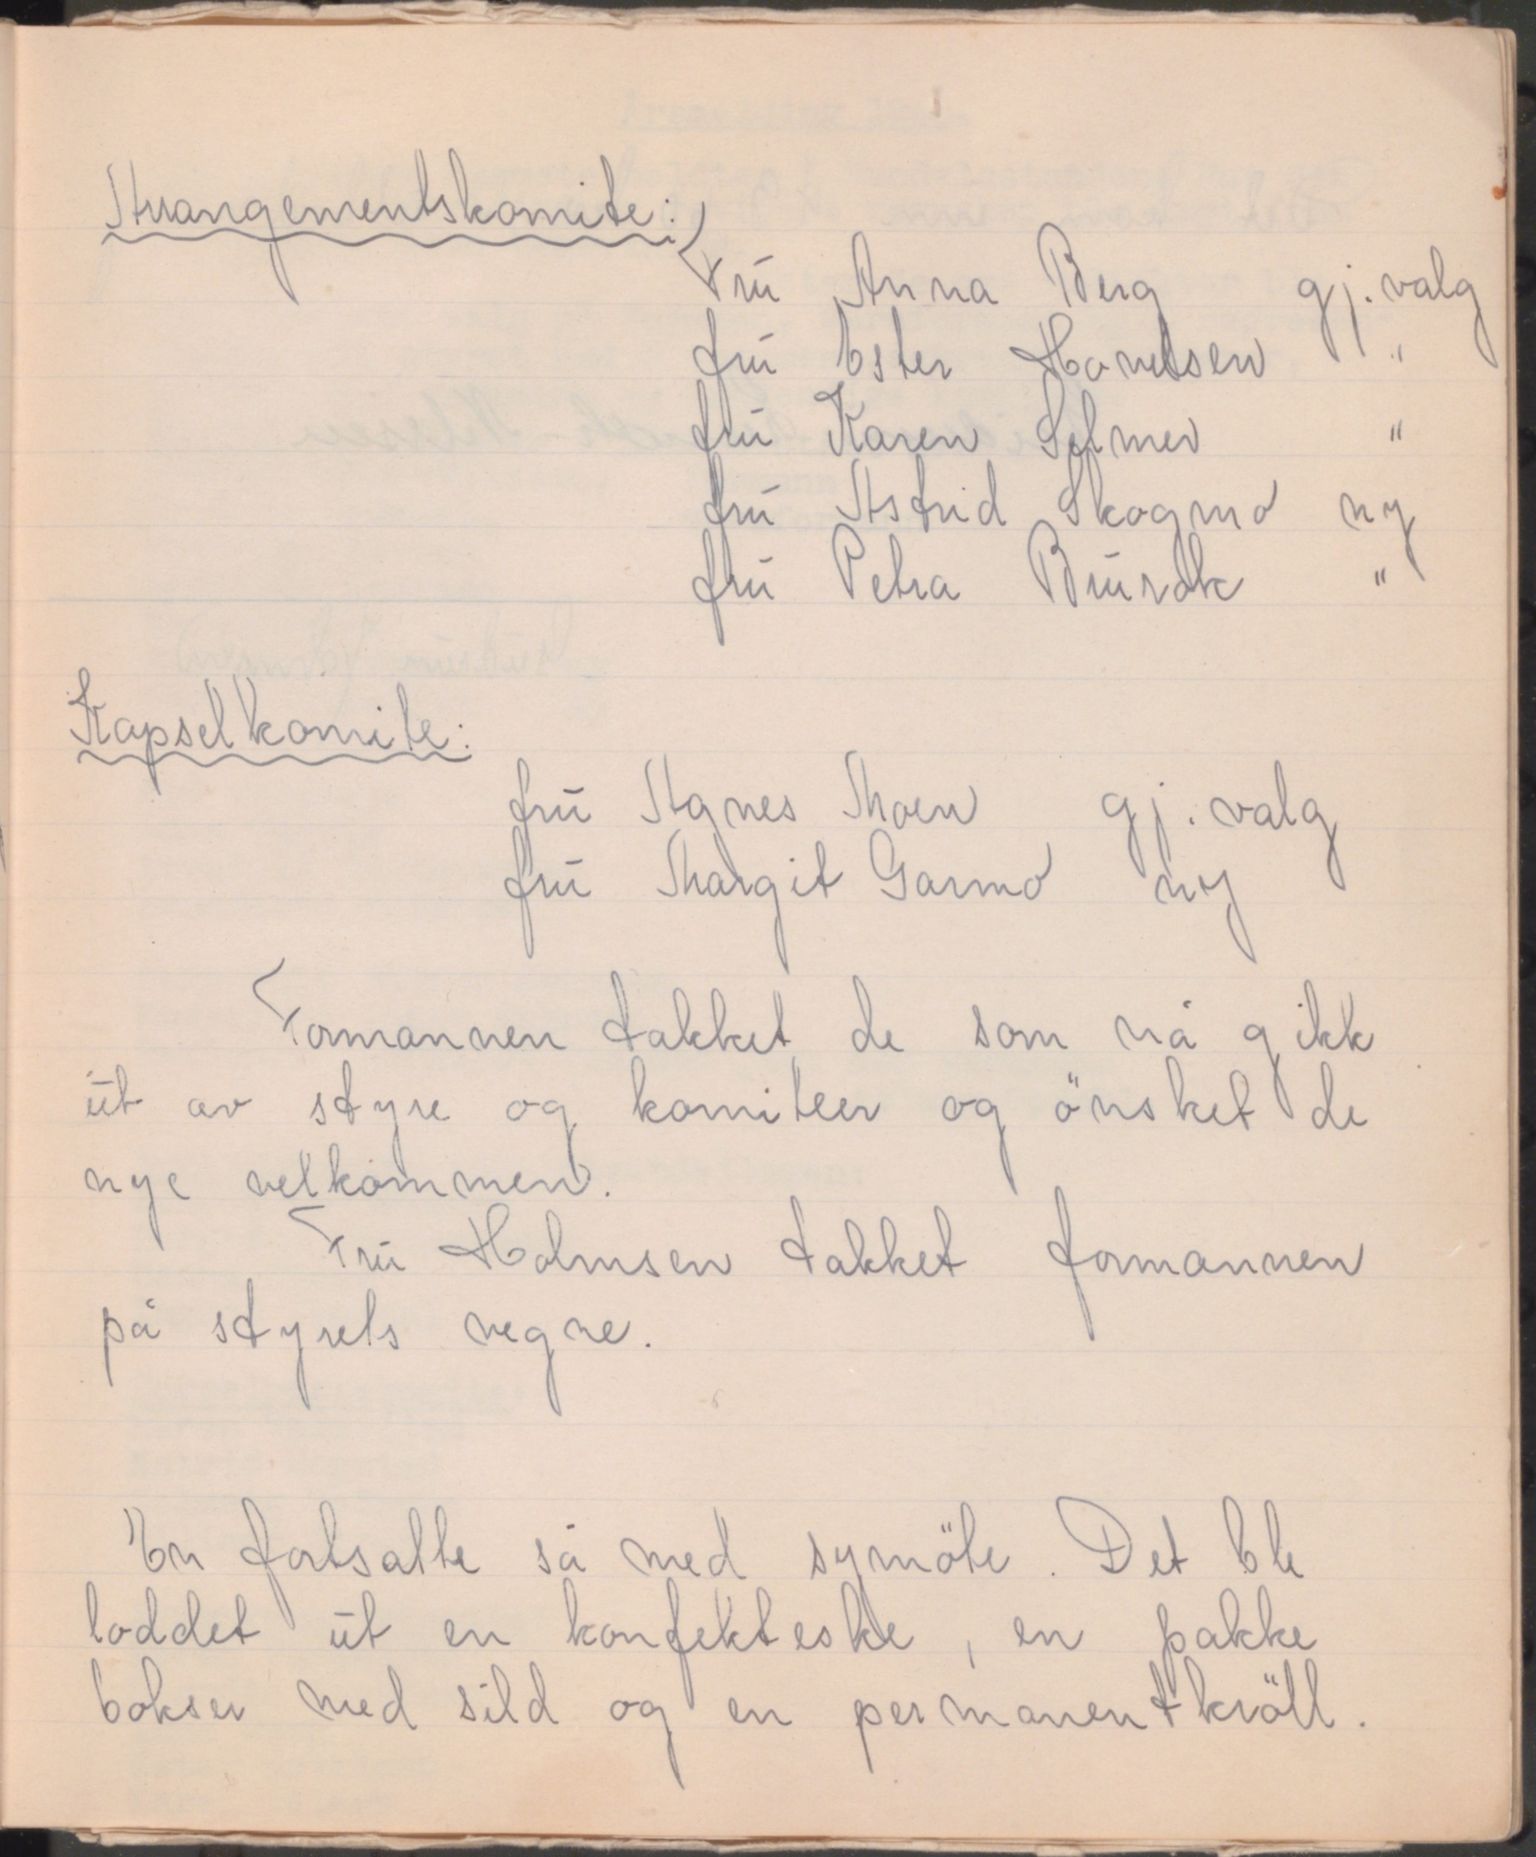 Arrangementskomite:
Fru Anna Berg gj. valg
fru Ester Hovelsen "
fru Karen Selmer "
fru Astrid Skogmo ny
fru Petra Buvak "
Kapselkomite:
fru Agnes Moen gj. valg
fru Margit Garmo ny
Formannen takket de som nå gikk
ut av styre og komiteer og önsket de
nye velkommen.
Fru Holmsen takket formannen
på styrets vegne.
En fortsatte så med symöte. Det ble
loddet ut en konfekteske, en pakke
bokser med sild og en permanentkröll.